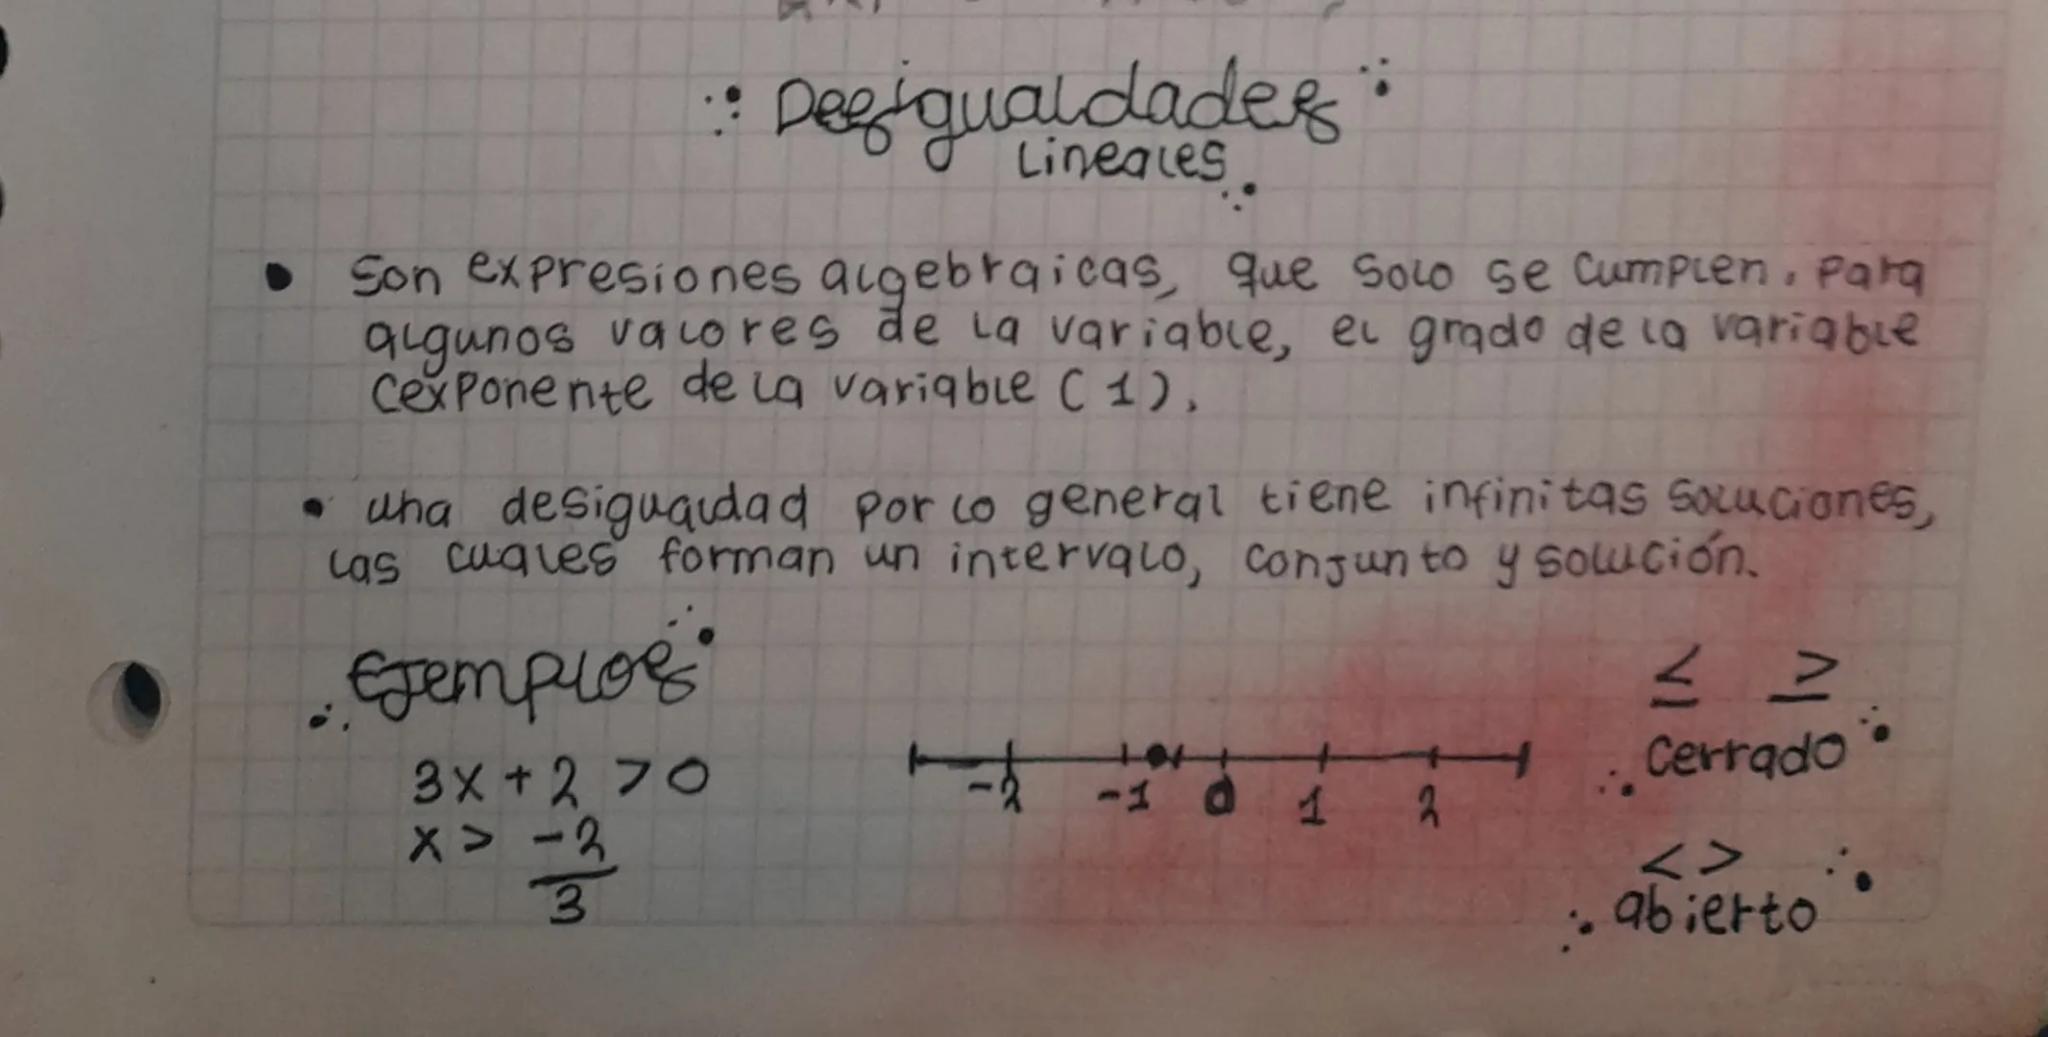 Desigualdades
Lineales
• Son expresiones algebraicas, que solo se cumplen, para
algunos valores de la variable, el grado de la variable
(exponente de la variable (1).
• una desigualdad por lo general tiene infinitas soluciones,
las cuales forman un intervalo, conjunto y solución.
Ejemplos
≤ ≥
cerrado
3x + 2 > 0
-2 -1 0 1 2
x > -2
3
< >
abierto